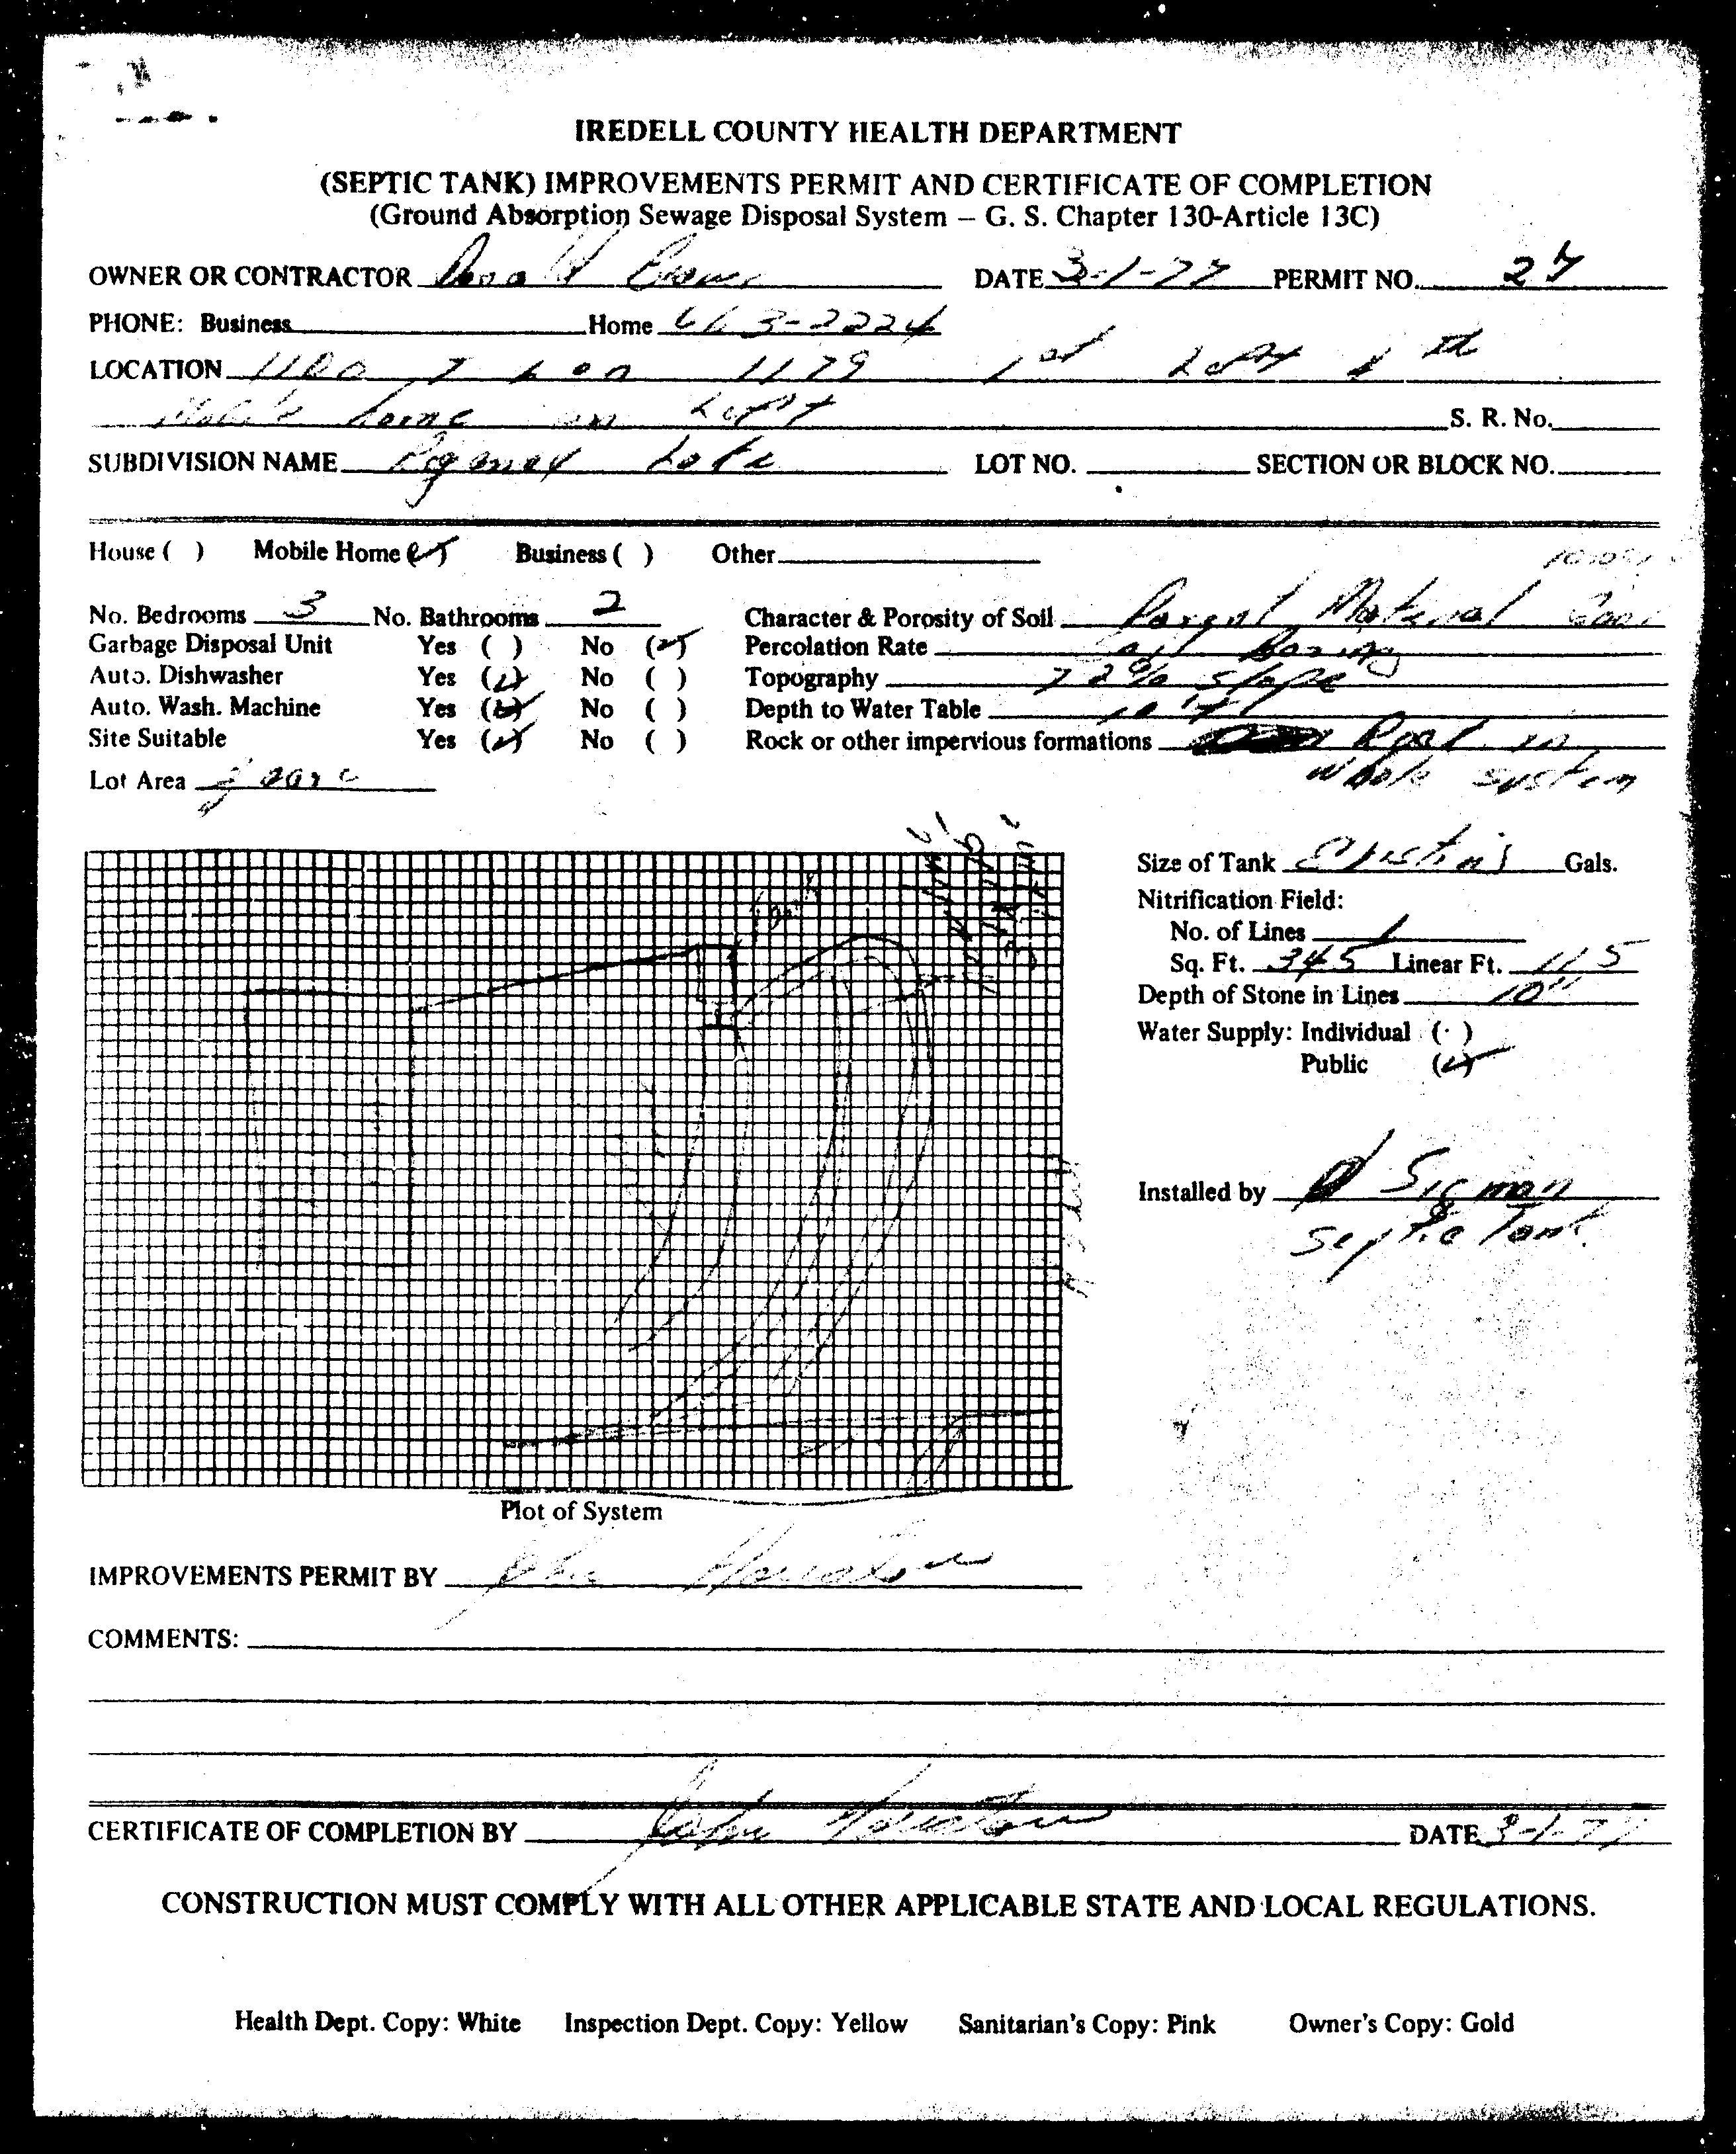 IREDELL COUNTY HEALTH DEPARTMENT
(SEPTIC TANK) IMPROVEMENTS PERMIT AND CERTIFICATE OF COMPLETION
(Ground Absorption Sewage Disposal System – G. S. Chapter 130-Article 13C)
OWNER OR CONTRACTOR Donald DATE 3-1-77 PERMIT NO.
PHONE: Business Home 663-2224
LOCATION 1100 1179 1st Left th
Mobile home on Left S. R. No.
SUBDIVISION NAME LOT NO. SECTION OR BLOCK NO.
House ( ) Mobile Home (✓) Business ( ) Other
No. Bedrooms 3 No. Bathrooms 2 Character & Porosity of Soil Parent Material
Garbage Disposal Unit Yes ( ) No (✓) Percolation Rate Boring
Auto. Dishwasher Yes (✓) No ( ) Topography 72% slope
Auto. Wash. Machine Yes (✓) No ( ) Depth to Water Table
Site Suitable Yes (✓) No ( ) Rock or other impervious formations in
whole system
Lot Area
Size of Tank Gals.
Nitrification Field:
No. of Lines 1
Sq. Ft. 345 Linear Ft. 115
Depth of Stone in Lines 10"
Water Supply: Individual ( )
Public (✓)
Installed by Sigmon
Septic Tank
Tank
Plot of System
IMPROVEMENTS PERMIT BY John Houston
COMMENTS:
CERTIFICATE OF COMPLETION BY John Houston DATE 3-1-77
CONSTRUCTION MUST COMPLY WITH ALL OTHER APPLICABLE STATE AND LOCAL REGULATIONS.
Health Dept. Copy: White Inspection Dept. Copy: Yellow Sanitarian's Copy: Pink Owner's Copy: Gold